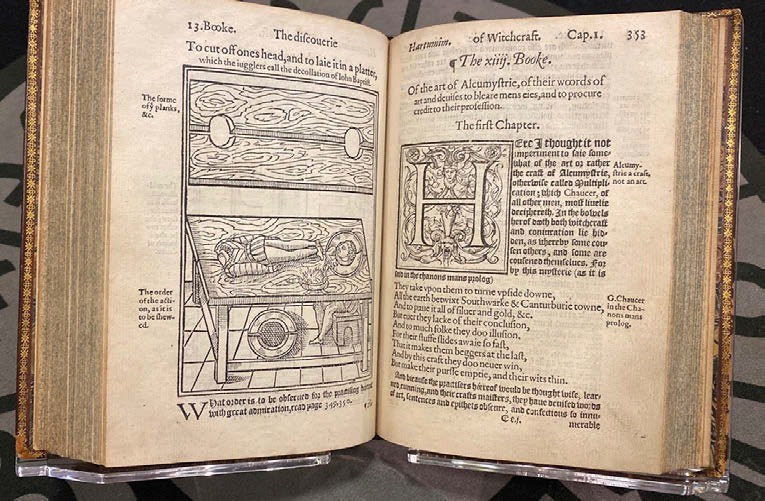 13.Booke.
The discouerie
To cut off ones head, and to laie it in a platter,
which the iugglers call the decollation of Iohn Baptist.
The forme
of yͤ planks,
&c.
The order
of the actiõ,
on, as it is
to be shew-
ed.
What order is to be obserued for the practising heereof
with great admiration, read page 349.350.
Hartumim.
of Witchcraft.
Cap.1.
353
¶ The xiiij. Booke.
Of the art of Alcumystrie, of their woords of
art and deuises to bleare mens eies, and to procure
credit to their profession.
The first Chapter.
HEre I thought it not
impertinent to saie some-
what of the art or rather
the craft of Alcumystrie,
otherwise called Multipli-
cation; which Chaucer, of
all other men, most liuelie
deciphereth. In the bowels
herof dooth both witchcraft
and coniuration lie hid-
den, as whereby some cou-
sen others, and some are
cousened themselues. For
by this mysterie (as it is
said in the chanons mans prolog)
Alcumy-
strie a craft,
not an art.
They take vpon them to turne vpside downe,
All the earth betwixt Southwarke & Canturburie towne,
And to paue it all of siluer and gold, &c.
But euer they lacke of their conclusion,
And to much folke they doo illusion,
For their stuffe slides awaie so fast,
That it makes them beggers at the last,
And by this craft they doo neuer win,
But make their pursse emptie, and their wits thin.
G.Chaucer
in the Cha-
nons mans
prolog.
And bicause the practisers heereof would be thought wise, lear-
ned, cunning, and their crafts maisters, they haue deuised words
of art, sentences and epithets obscure, and confections so innu-
merable